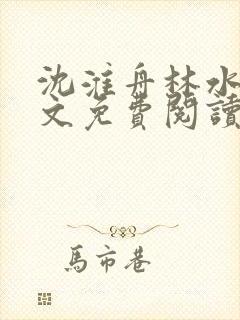 沈淮舟林水
文免費閱讀
馬市巷